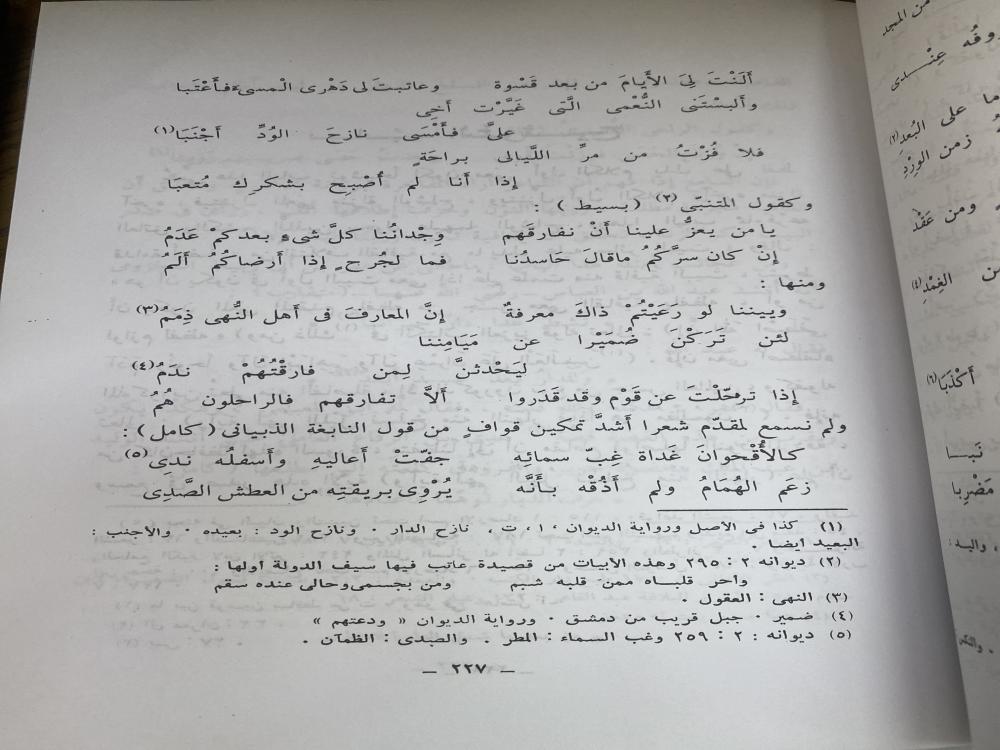 أَلَنْتَ لِىَ الأَيامَ من بعد قَسْوة وعاتبتَ لى دَهْرِى الْمسىءَ فأَعْتَبا
وأَلبسْتَنى النُّعْمى الَّتى غَيَّرْت أَخِى
علىَّ فأَمْسَى نازحَ الوُدِّ أَجْنَبَا (١)
فلا فُزْتُ من مرِّ اللَّيالى براحَةٍ
إذا أنا لم أُصْبِح بشكرك مُتعبَا
وكقول المتنبّى (٢) ( بسيط ) :
يا من يعزُّ علينا أَنْ نفارقَهم وِجْدانُنا كلَّ شىءٍ بعدكمْ عَدَمُ
إنْ كان سرَّكُمُ ماقالَ حَاسدُنا فما لجُرحٍ إذا أرضاكُمُ أَلَمُ
ومنها :
وبيننا لو رَعَيْتُمْ ذاكَ معرفةٌ إنَّ المعارفَ فى أهل النُّهى ذِمَمُ (٣)
لئن تَرَكْن ضُمَيْرا عن مَيَامِننا
ليَحْدثنَّ لِمن فارقْتُهُمْ ندَمُ (٤)
إذا ترحّلْتَ عن قَوْم وقد قَدَروا ألاَّ تفارقهم فالراحلون هُمُ
ولم نسمع لمقدّم شعرا أشدَّ تمكين قوافٍ من قول النابغة الذبيانى ( كامل ) :
كالأُقْحوانَ غَداة غِبّ سمائِه جفّتْ أعاليهِ وأسفلُه ندِى (٥)
زعَم الهُمَامُ ولم أَذُقْه بأَنَّه يُرْوِى بريقتِه من العطش الصَّدِى
(١) كذا فى الأصل ورواية الديوان ، ا ، ت . نازح الدار . ونازح الود : بعيده . والأجنب :
البعيد أيضا .
(٢) ديوانه ٢ : ٢٩٥ وهذه الأبيات من قصيدة عاتب فيها سيف الدولة أولها :
واحر قلباه ممن قلبه شبم ومن بجسمى وحالى عنده سقم
(٣) النهى : العقول .
(٤) ضمير . جبل قريب من دمشق . ورواية الديوان « ودعتهم »
(٥) ديوانه : ٢ : ٢٥٩ وغب السماء : المطر . والصدى : الظمآن .
— ٢٢٧ —
من المجد
عِنْدى
على البُعدِ (٢)
زمن الوِرْدِ
ومن عَقْد
الغِمْدِ (٤)
أَكْذَبَا (٦)